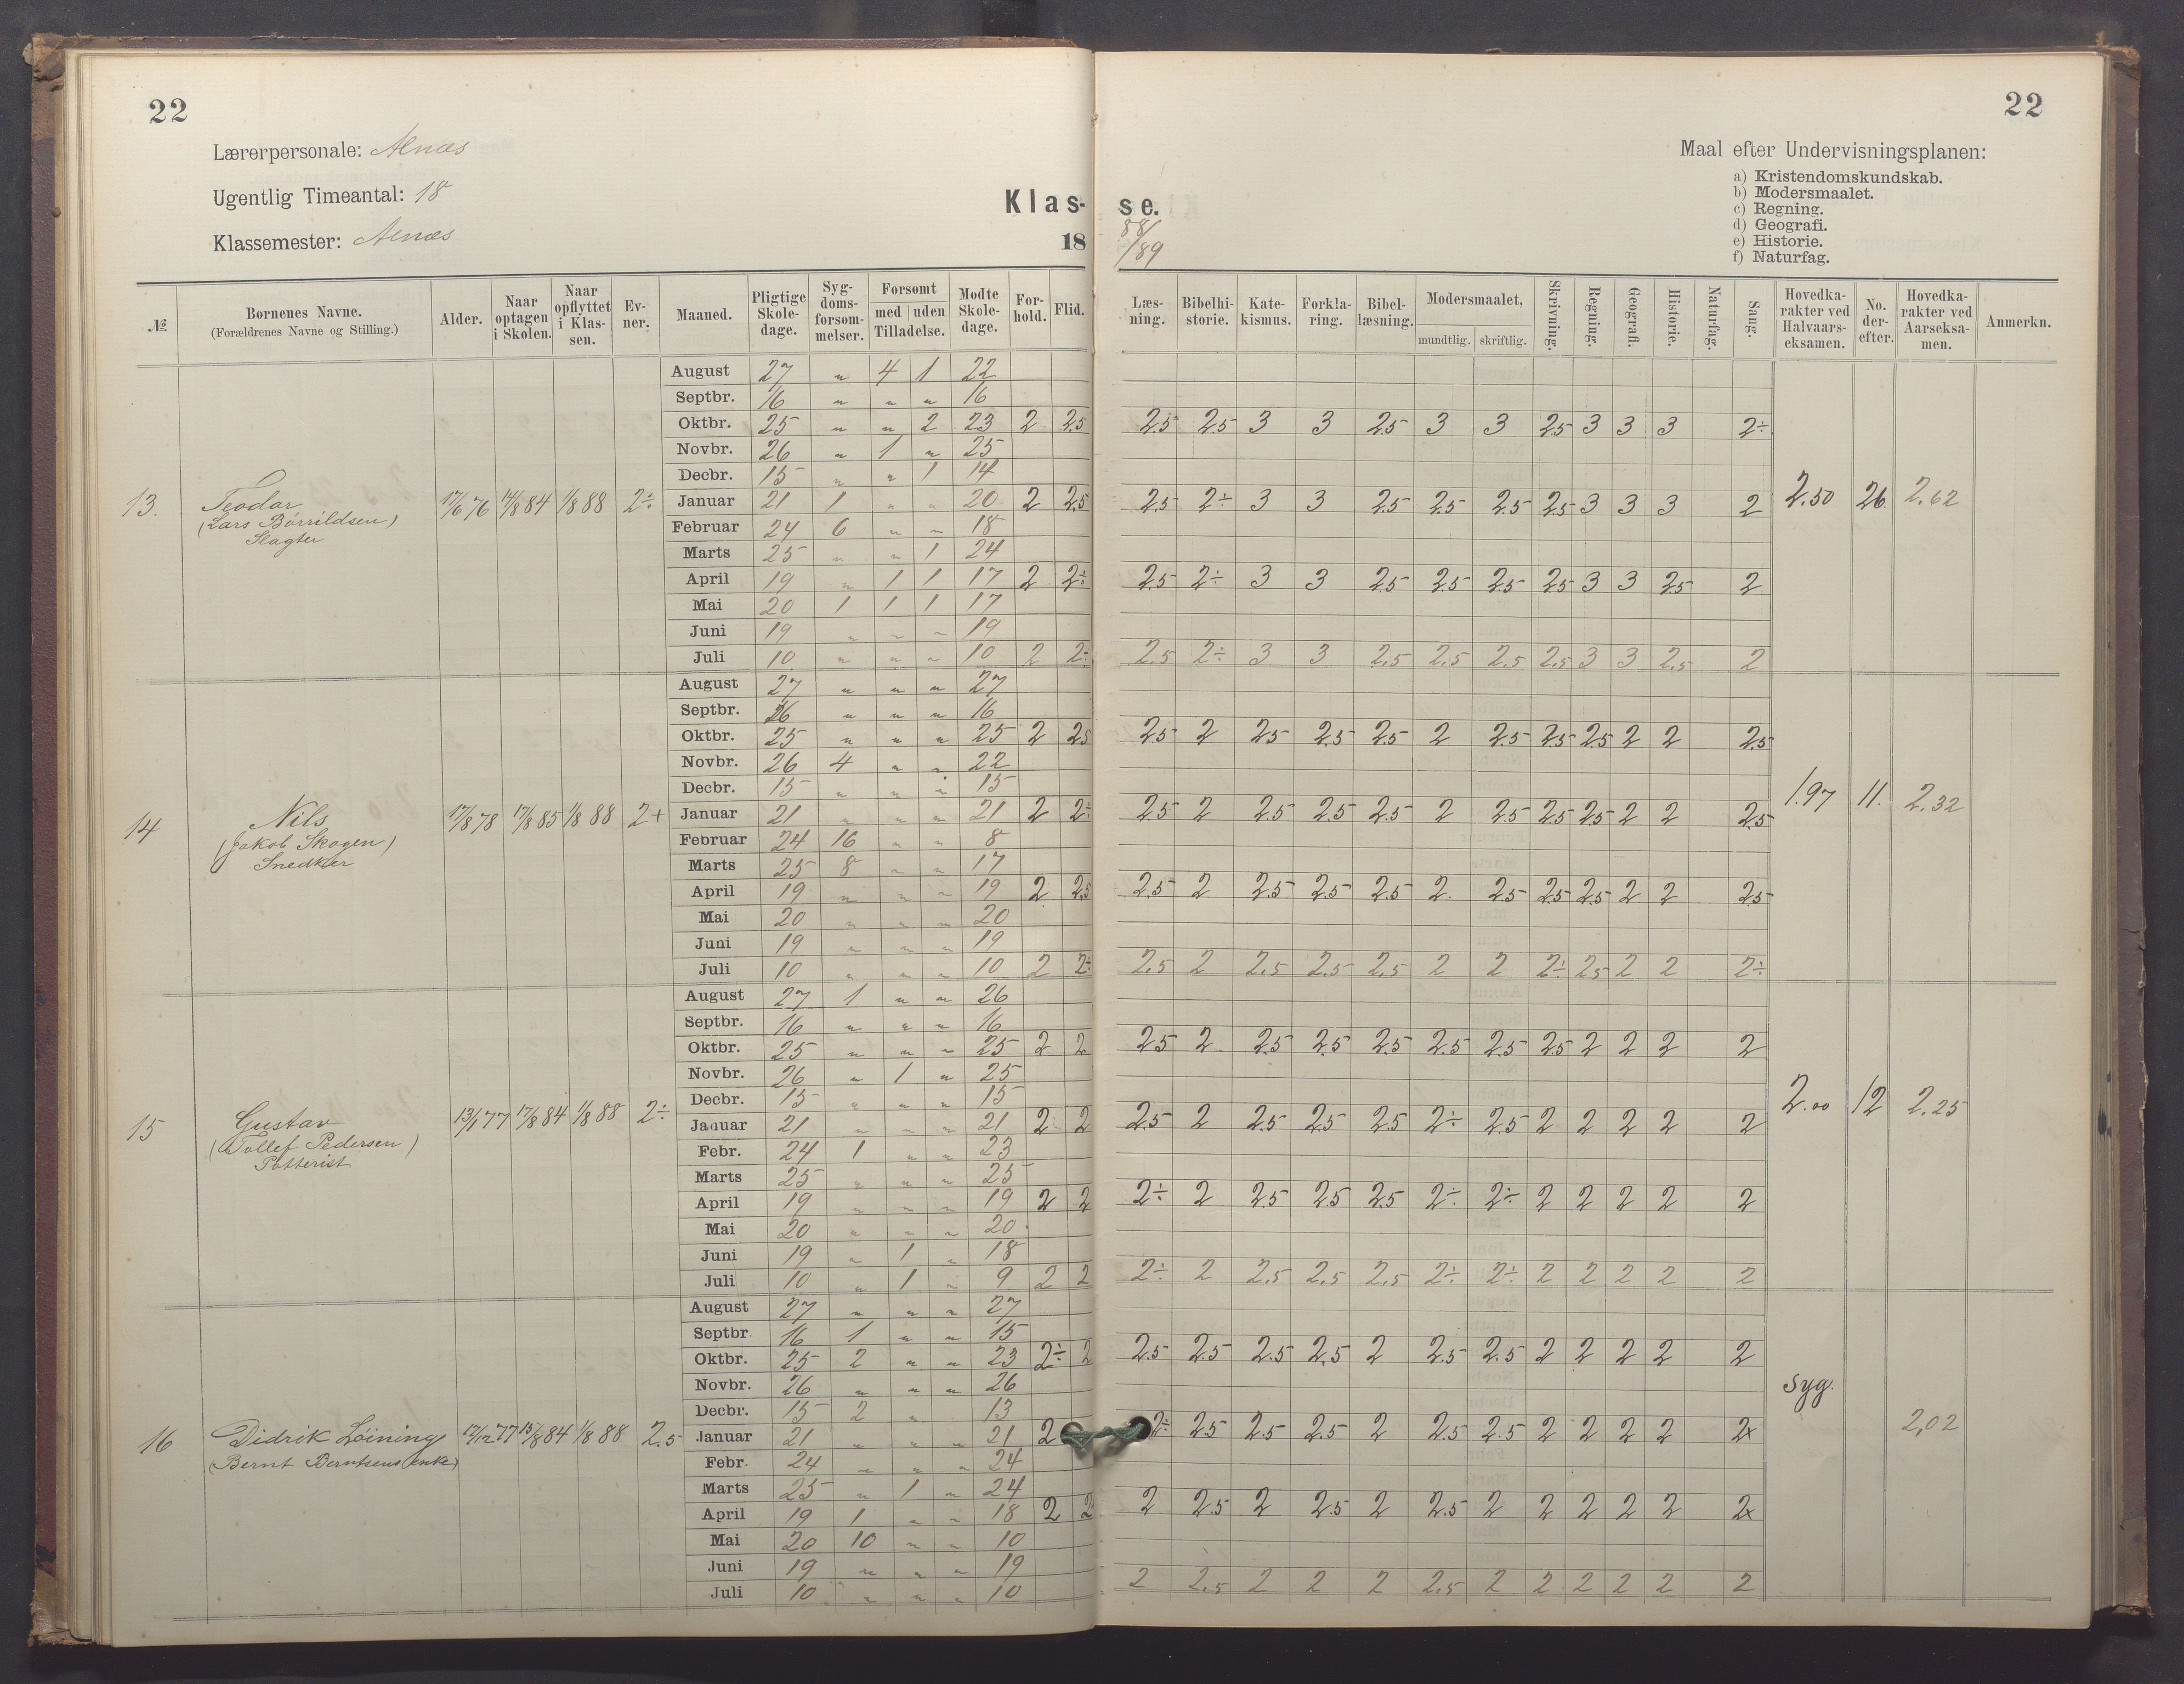 22
Lærerpersonale: Alnæs
Ugentlig Timeantal: 18
Klassemester: Alnæs
Klas-
18
№
Bornenes Navne.
(Forældrenes Navne og Stilling.)
Alder.
Naar optagen i Skolen.
Naar opflyttet i Klas-sen.
Ev-ner.
Maaned.
Pligtige Skole-dage.
Syg-doms-forsom-melser.
Forsomt
med | uden
Tilladelse.
Modte Skole-dage.
For-hold.
Flid.
August 27 " 4 1 22
Septbr. 16 " " " 16
Oktbr. 25 " " 2 23 2 2.5
Novbr. 26 " 1 " 25
Decbr. 15 " " 1 14
13. Teodor 17/6 76 14/8 84 1/8 88 2÷
(Lars Börrildsen)
Slagter
Januar 21 1 " " 20 2 2.5
Februar 24 6 " " 18
Marts 25 " " 1 24
April 19 " 1 1 17 2 2÷
Mai 20 1 1 1 17
Juni 19 " " " 19
Juli 10 " " " 10 2 2÷
August 27 " " " 27
Septbr. 16 " " " 16
Oktbr. 25 " " " 25 2 2.5
Novbr. 26 4 " " 22
Decbr. 15 " " " 15
14 Nils 17/8 78 17/8 85 1/8 88 2+
(Jakob Skogen)
Snedker
Januar 21 " " " 21 2 2÷
Februar 24 16 " " 8
Marts 25 8 " " 17
April 19 " " " 19 2 2.5
Mai 20 " " " 20
Juni 19 " " " 19
Juli 10 " " " 10 2 2÷
August 27 1 " " 26
Septbr. 16 " " " 16
Oktbr. 25 " " " 25 2 2
Novbr. 26 " 1 " 25
Decbr. 15 " " " 15
15 Gustav 13/1 77 17/8 84 1/8 88 2÷
(Tollef Pedersen)
Potterist
Januar 21 " " " 21 2 2
Febr. 24 1 " " 23
Marts 25 " " " 25
April 19 " " " 19 2 2
Mai 20 " " " 20
Juni 19 " 1 " 18
Juli 10 " 1 " 9 2 2
August 27 " " " 27
Septbr 16 1 " " 15
Oktbr. 25 2 " " 23 2÷ 2
Novbr. 26 " " " 26
Decbr. 15 2 " 13
16 Didrik Löining 17/12 77 15/8 84 1/8 88 2.5
(Bernt Berntsens enke)
Januar 21 " " " 21 2
Febr. 24 " " " 24
Marts 25 " 1 " 24
April 19 1 " " 18 2 2
Mai 20 10 " " 10
Juni 19 " " " 19
Juli 10 " " " 10
22
Maal efter Undervisningsplanen:
a) Kristendomskundskab.
b) Modersmaalet.
c) Regning.
d) Geografi.
e) Historie.
f) Naturfag.
se.
88/89
Læs-ning.
Bibelhi-storie.
Kate-kismus.
Forkla-ring.
Bibel-læsning.
Modersmaalet,
mundtlig. | skriftlig.
Skrivning.
Regning.
Geografi.
Historie.
Naturfag.
Sang.
Hovedka-rakter ved Halvaars-eksamen.
No. der-efter.
Hovedka-rakter ved Aarseksa-men.
Anmerkn.
2.5 2.5 3 3 2.5 3 3 2.5 3 3 3 2÷
2.5 2÷ 3 3 2.5 2.5 2.5 2.5 3 3 3 2 2.50 26 2.62
2.5 2÷ 3 3 2.5 2.5 2.5 2.5 3 3 2.5 2
2.5 2÷ 3 3 2.5 2.5 2.5 2.5 3 3 2.5 2
2.5 2 2.5 2.5 2.5 2 2.5 2.5 2.5 2 2 2.5
2.5 2 2.5 2.5 2.5 2 2.5 2.5 2.5 2 2 2.5 1.97 11. 2.32
2.5 2 2.5 2.5 2.5 2. 2.5 2.5 2.5 2 2 2.5
2.5 2 2.5 2.5 2.5 2 2 2÷ 2.5 2 2 2÷
2.5 2 2.5 2.5 2.5 2.5 2.5 2.5 2 2 2 2
2.5 2 2.5 2.5 2.5 2÷ 2.5 2 2 2 2 2 2.00 12 2.25
2÷ 2 2.5 2.5 2.5 2÷ 2÷ 2 2 2 2 2
2÷ 2 2.5 2.5 2.5 2÷ 2÷ 2 2 2 2 2
2.5 2.5 2.5 2.5 2 2.5 2.5 2 2 2 2 2
syg.
2÷ 2.5 2.5 2.5 2 2.5 2.5 2 2 2 2 2x 2,02
2 2.5 2 2.5 2 2.5 2 2 2 2 2 2x
2 2.5 2 2 2 2.5 2 2 2 2 2 2